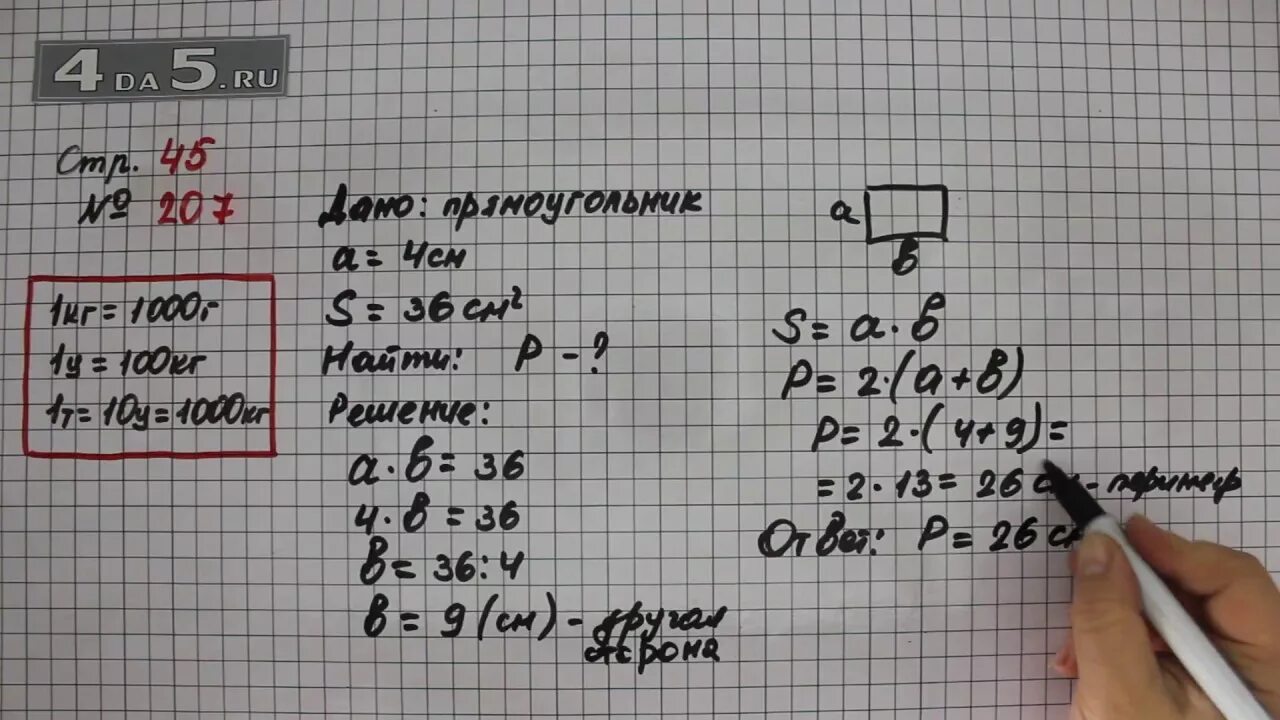 4DA5.RU
Стр. 45
№ 207
1кг = 1000г
1ц = 100кг
1т = 10ц = 1000кг
Дано: прямоугольник
a = 4см
S = 36 см²
Найти: P - ?
Решение:
a · b = 36
4 · b = 36
b = 36 : 4
b = 9 (см) - другая
сторона
a
b
S = a · b
P = 2 · (a + b)
P = 2 · (4 + 9) =
= 2 · 13 = 26 см - периметр
Ответ: P = 26 см